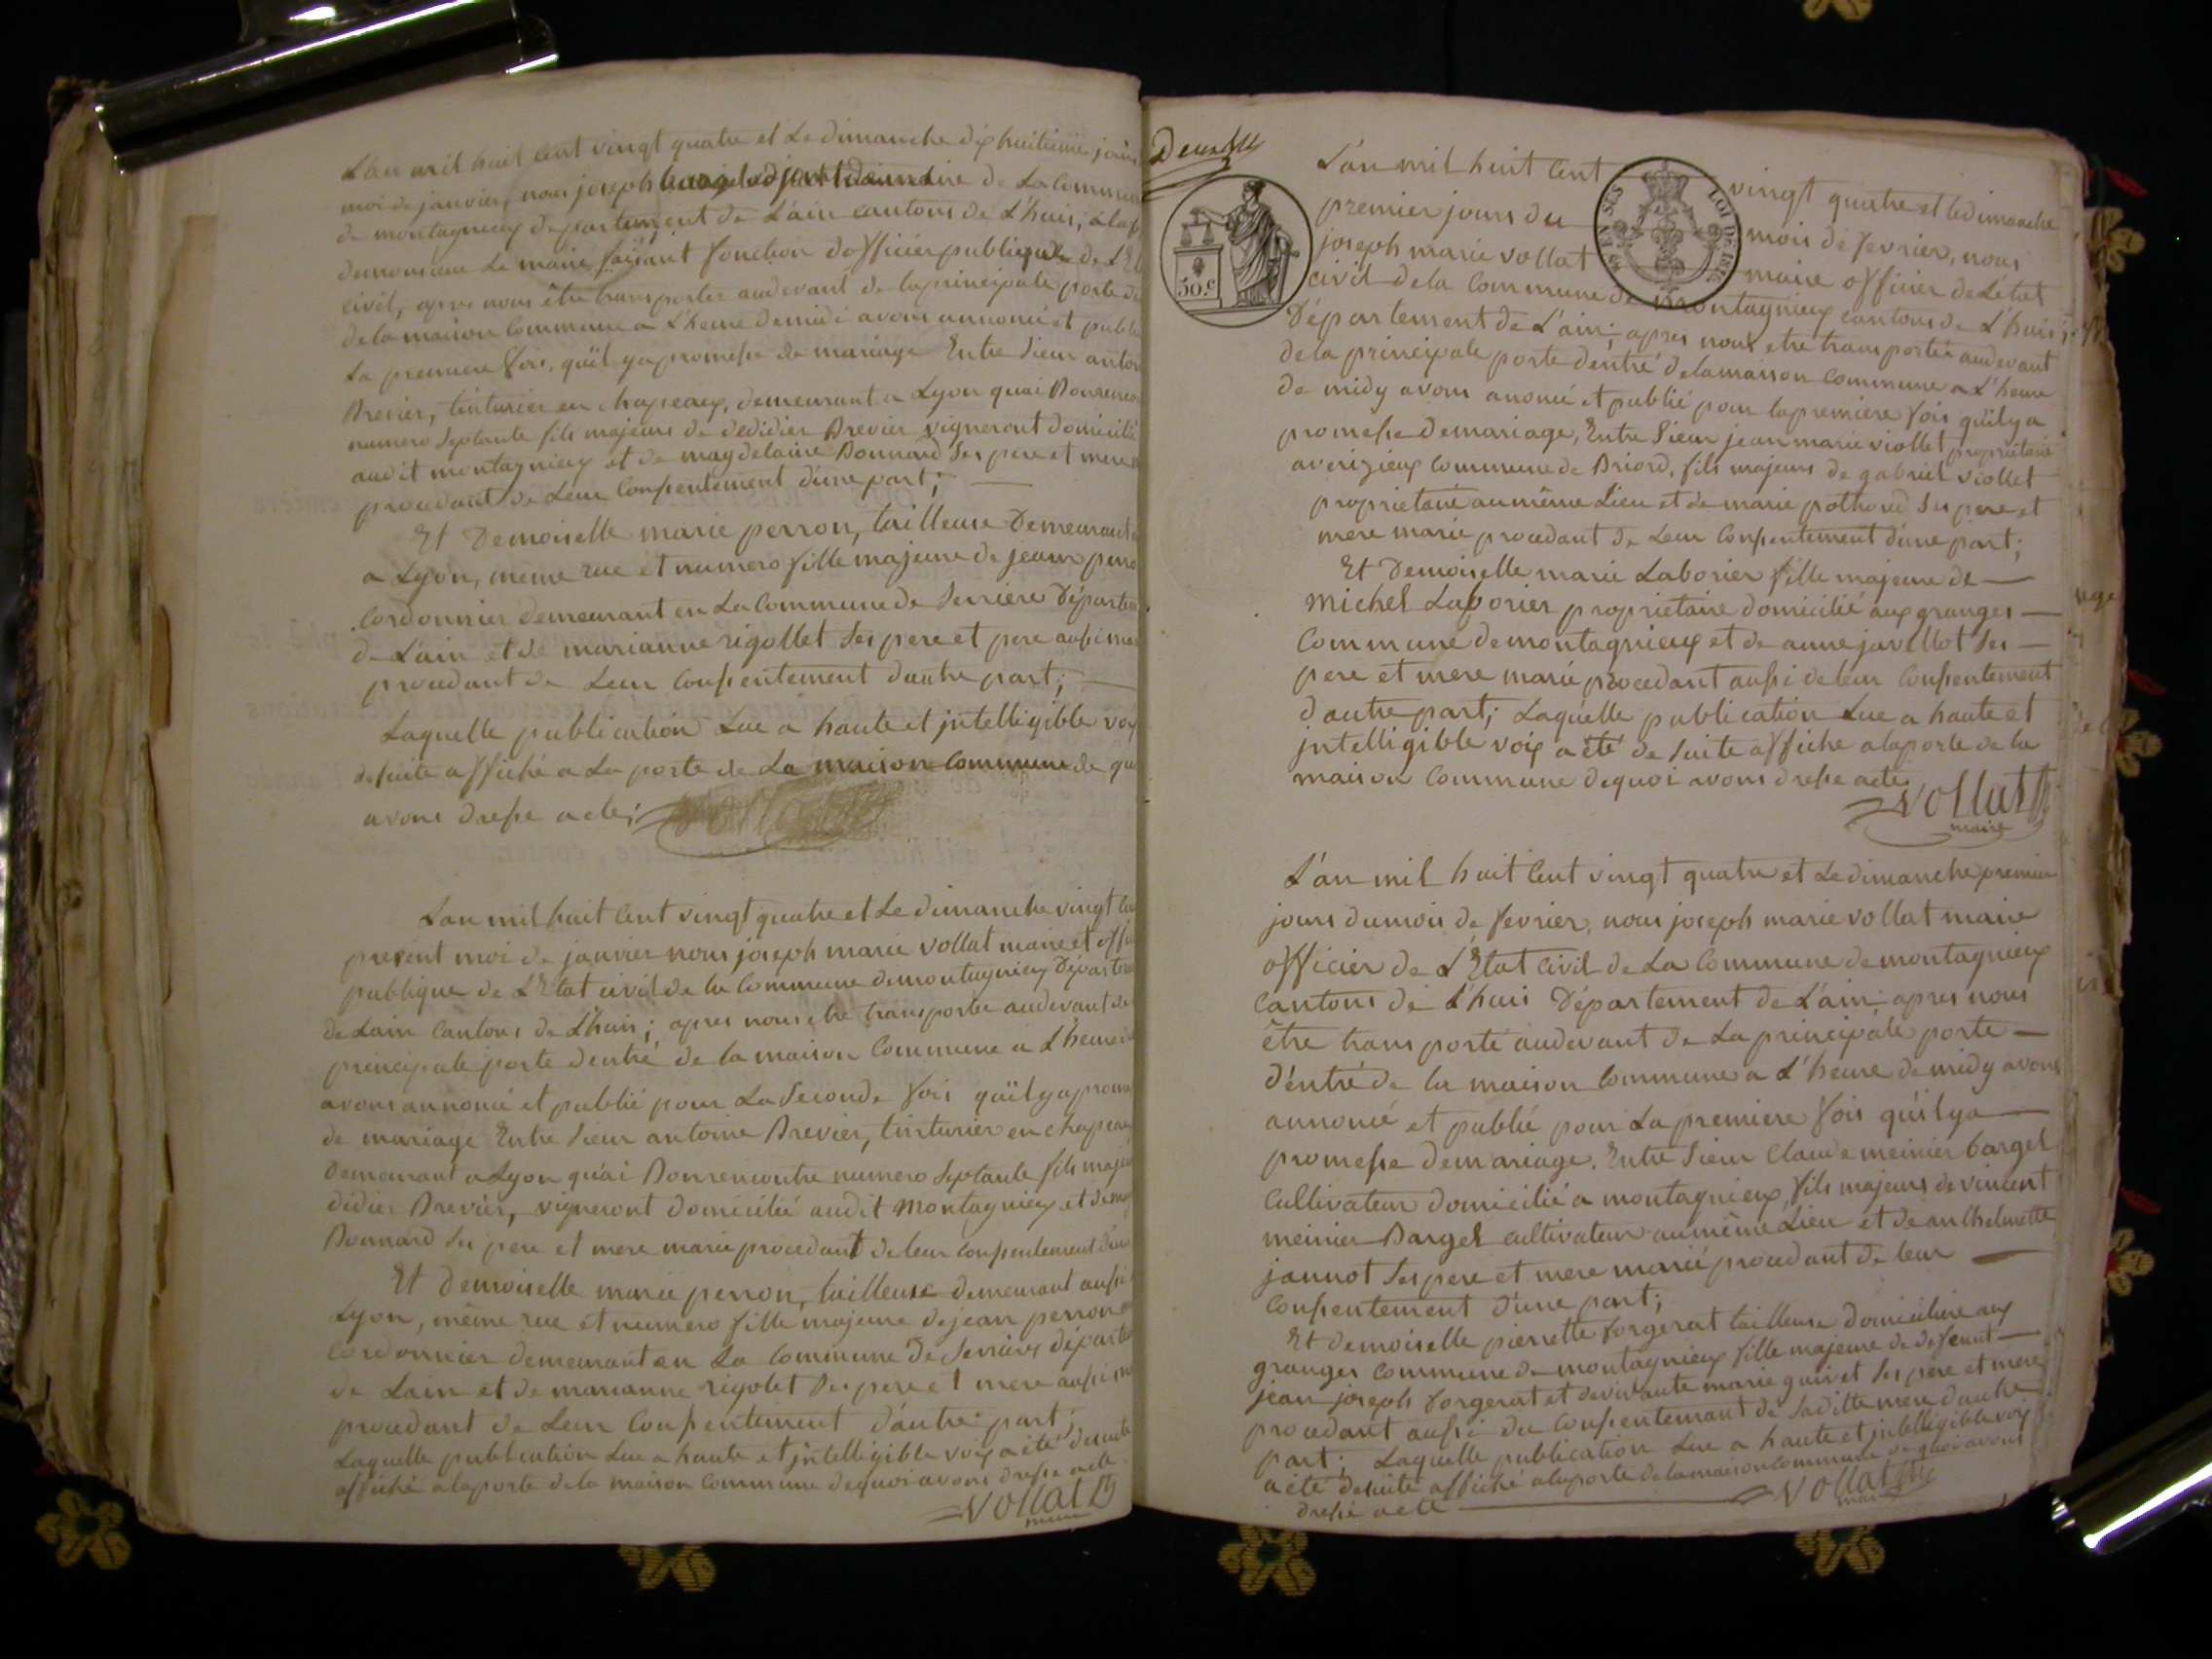 L'an mil huit cent vingt quatre et Le dimanche dix huitieme jours
moi de janvier, nous joseph de La Commun
de montagnieux departement de L'ain cantons de L'huis; a
denomieu Le maire faisant fonction d'officier publique de L'Et
civil, apres nous être transporter audevant de la principale porte de
de la maison Commune a L'heure de midi avons annoncé et publié
La premiere fois, qu'il y a promesse de mariage Entre Sieur anton
Brevier, tinturier en chapeaux, demeurant a Lyon quai Bonrencon
numero Septante fils majeurs de dedidier Brevier vigneront domicilié
audit montagnieux et de magdelaine Bonnard Ses pere et mere
procedant de Leur Consentement d'une part;
Et Demoiselle marie perron, tailleuse Demeurant
a Lyon, meme rue et numero fille majeure de jean perro
Cordonnier demeurant en La Commune de Serriere Départem
de L'ain et de marianne rigollet Ses pere et pere aussi
procedant de Leur Consentement d'autre part;
Laquelle publication Lue a haute et jntelligible voix
de suite affiché a La porte de La maison Commune de qu
avons dresse acte;
L'an mil huit Cent vingt quatre et Le dimanche vingt
present moi de janvier nous joseph marie vollat maire et offi
publique de L'Etat civil de la Commune de montagnieux Départem
de Lain Cantons de L'huis; apres nous etre transporter audevant de
principale porte d'entré de la maison Commune a L'heure
avons annoncé et publié pour La Seconde fois qu'il y a prome
de mariage Entre Sieur antoine Brevier, tinturier en chapeau
Demeurant a Lyon quai Bonrencontre numero Septante fils majeu
didier Brevier, vigneront domicilié audit montagnieux et de mag
Bonnard Ses pere et mere marié procedant de leur consentement d'un
Et demoiselle marie perron, tailleuse demeurant aussi
Lyon, même rue et numero fille majeure de jean perron
Cordonnier demeurant en La Commune de Serriere départe
de Lain et de marianne rigolet Ses pere et mere aussi m
procedant de Leur Consentement d'autre part;
Laquelle publication Lue a haute et jntelligible voix a été de suite
affiché a la porte de la maison Commune de quoi avons dresse acte
vollat
maire
Deux
L'an mil huit Cent vingt quatre et le dimanche
premier jours du mois de fevrier, nous
joseph marie vollat maire officier de Létat
civil de la Commune de montagnieux cantons de L'huis;
Département de L'ain; apres nous etre transportée audevant
de la principale porte d'entré de la maison Commune a L'heure
de midy avons anoncé et publié pour la premiere fois qu'il y a
promesse de mariage, Entre Sieur jean marie viollet propriétaire
a verizieux Commune de Briord, fils majeurs de gabriel viollet
propriétaire au même Lieu et de marie pothond Ses pere et
mere marié procedant de Leur Consentement d'une part;
Et Demoiselle marie Laborier fille majeure de
michel Laborier proprietaire domicilié aux granges
Commune de montagnieux et de anne javellot Ses
pere et mere marié procedant aussi de leur Consentement
d'autre part; Laquelle publication Lue a haute et
jntelligible voix a été de suite affiché a la porte de la
maison Commune de quoi avons dresse acte
vollat
maire
L'an mil huit Cent vingt quatre et Le dimanche premier
jours du mois de fevrier, nous joseph marie vollat maire
officier de L'Etat Civil de La Commune de montagnieux
Cantons de L'huis Département de L'ain; apres nous
être transporté audevant de La principale porte
d'éntré de la maison Commune a L'heure de midy avons
annoncé et publié pour La premiere fois qu'il y a
promesse de mariage. Entre Sieur Claude meinier bargel
Cultivateur domicilié a montagnieux, fils majeurs de vincent
meinier Bargel cultivateur au même Lieu et de anthelmette
jannot Ses pere et mere marié procedant de leur
Consentement d'une part;
Et demoiselle pierrette forgerat tailleuse domiciliée aux
granges Commune de montagnieux fille majeure de defeunt
jean joseph forgerat et de vivante marie guivet Ses pere et mere
procedant aussi du Consentement de Saditte mere d'autre
part; Laquelle publication Lue a haute et jntelligible voix
a été de suite affiché a la porte de la maison Commune de quoi avons
dresse acte
vollat
maire
50.c
LOI DE 1816
EN SUS